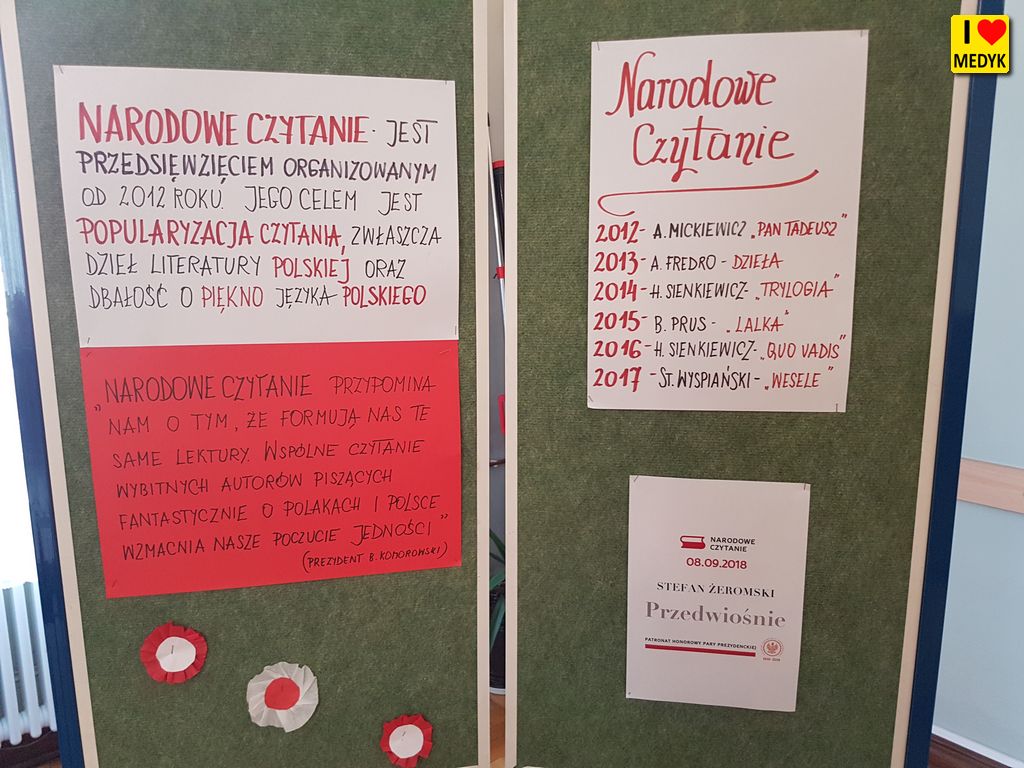 NARODOWE CZYTANIE - JEST
PRZEDSIĘWZIĘCIEM ORGANIZOWANYM
OD 2012 ROKU. JEGO CELEM JEST
POPULARYZACJA CZYTANIA, ZWŁASZCZA
DZIEŁ LITERATURY POLSKIEJ ORAZ
DBAŁOŚĆ O PIĘKNO JĘZYKA POLSKIEGO
„NARODOWE CZYTANIE PRZYPOMINA
NAM O TYM, ŻE FORMUJĄ NAS TE
SAME LEKTURY. WSPÓLNE CZYTANIE
WYBITNYCH AUTORÓW PISZĄCYCH
FANTASTYCZNIE O POLAKACH I POLSCE
WZMACNIA NASZE POCZUCIE JEDNOŚCI”
(PREZYDENT B. KOMOROWSKI)
Narodowe
Czytanie
2012 - A. MICKIEWICZ „PAN TADEUSZ”
2013 - A. FREDRO - DZIEŁA
2014 - H. SIENKIEWICZ - „TRYLOGIA”
2015 - B. PRUS - „LALKA”
2016 - H. SIENKIEWICZ - „QUO VADIS”
2017 - ST. WYSPIAŃSKI - „WESELE”
NARODOWE
CZYTANIE
08.09.2018
STEFAN ŻEROMSKI
Przedwiośnie
PATRONAT HONOROWY PARY PREZYDENCKIEJ
I
MEDYK